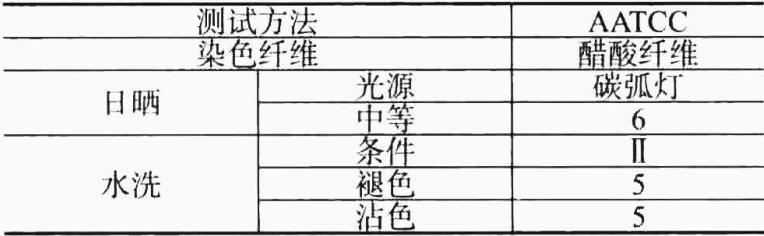 测试方法 AATCC
染色纤维 醋酸纤维
日晒 光源 碳弧灯
中等 6
水洗 条件 Ⅱ
褪色 5
沾色 5